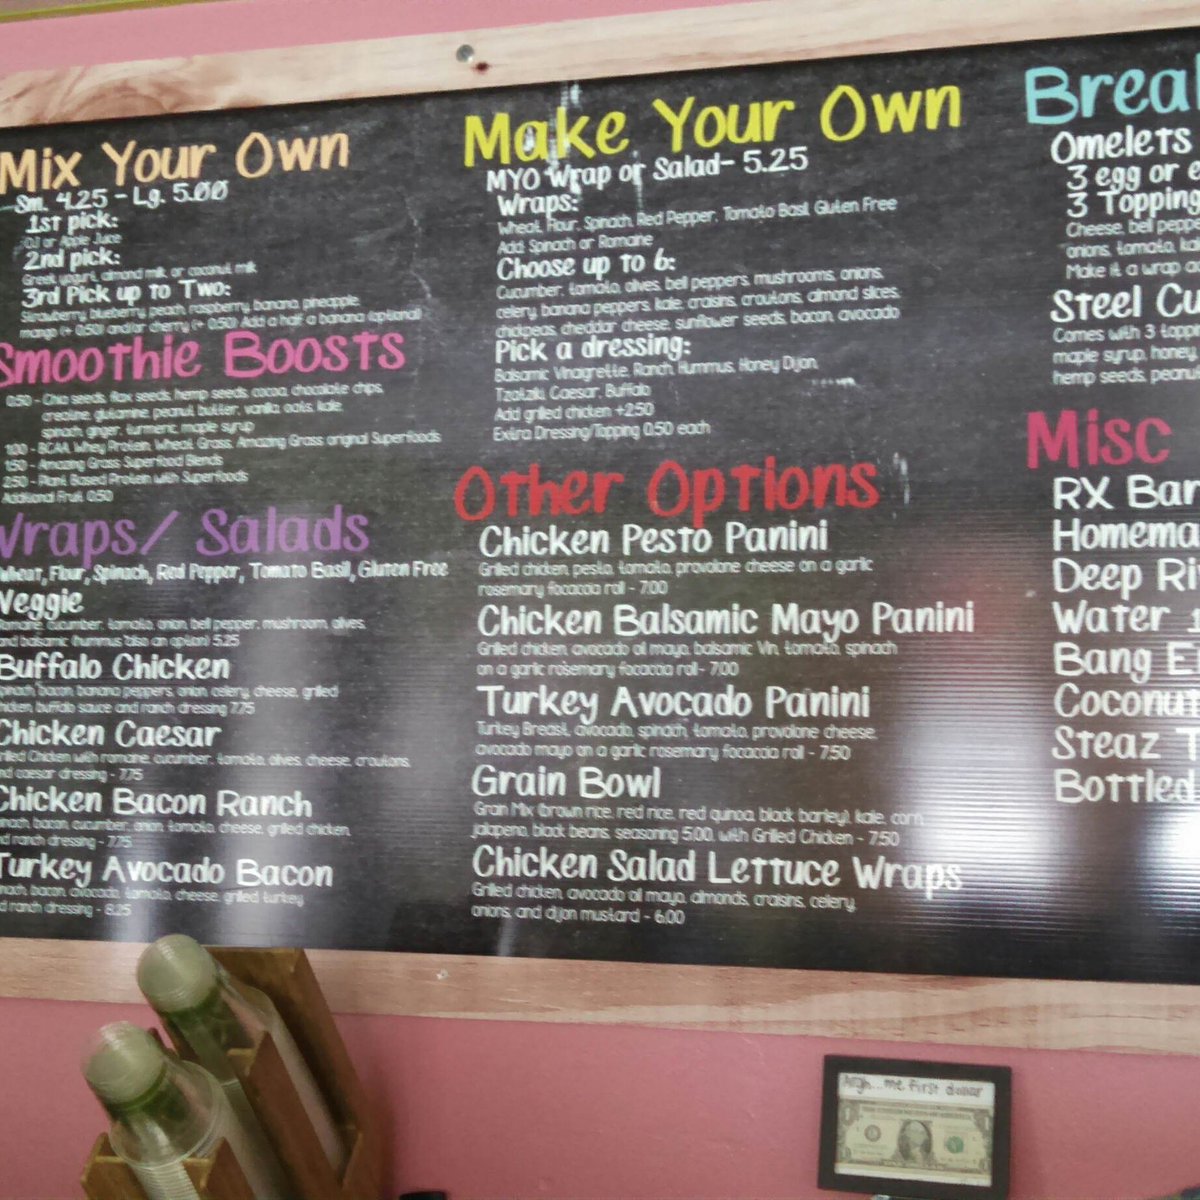 Mix Your Own
Sm. 4.25 - Lg. 5.00
1st pick:
OJ or Apple Juice
2nd pick:
Greek yogurt, almond milk, or coconut milk
3rd Pick up to Two:
Strawberry, blueberry, peach, raspberry, banana, pineapple,
mango (+ 0.50) and/or cherry (+ 0.50) Add a half a banana (optional)
Smoothie Boosts
0.50 - Chia seeds, flax seeds, hemp seeds, cocoa, chocolate chips,
creatine, glutamine, peanut butter, vanilla, oats, kale,
spinach, ginger, turmeric, maple syrup
1.00 - BCAA, Whey Protein, Wheat Grass, Amazing Grass original Superfoods
1.50 - Amazing Grass Superfood Blends
2.50 - Plant Based Protein with Superfoods
Additional Fruit 0.50
Wraps/ Salads
Wheat, Flour, Spinach, Red Pepper, Tomato Basil, Gluten Free
Veggie
Romaine, cucumber, tomato, onion, bell pepper, mushroom, olives,
and balsamic (hummus also an option) 5.25
Buffalo Chicken
spinach, bacon, banana peppers, onion, celery, cheese, grilled
chicken, buffalo sauce and ranch dressing 7.75
Chicken Caesar
Grilled Chicken with romaine, cucumber, tomato, olives, cheese, croutons,
and caesar dressing - 7.75
Chicken Bacon Ranch
spinach, bacon, cucumber, onion, tomato, cheese, grilled chicken,
and ranch dressing - 7.75
Turkey Avocado Bacon
spinach, bacon, avocado, tomato, cheese, grilled turkey,
d ranch dressing - 8.25
Make Your Own
MYO Wrap or Salad- 5.25
Wraps:
Wheat, Flour, Spinach, Red Pepper, Tomato Basil, Gluten Free
Add: Spinach or Romaine
Choose up to 6:
Cucumber, tomato, olives, bell peppers, mushrooms, onions,
celery, banana peppers, kale, craisins, croutons, almond slices,
chickpeas, cheddar cheese, sunflower seeds, bacon, avocado
Pick a dressing:
Balsamic Vinaigrette, Ranch, Hummus, Honey Dijon,
Tzatziki, Caesar, Buffalo
Add grilled chicken +2.50
Extra Dressing/Topping 0.50 each
Other Options
Chicken Pesto Panini
Grilled chicken, pesto, tomato, provolone cheese on a garlic
rosemary focaccia roll - 7.00
Chicken Balsamic Mayo Panini
Grilled chicken, avocado oil mayo, balsamic Vin, tomato, spinach
on a garlic rosemary focaccia roll- 7.00
Turkey Avocado Panini
Turkey Breast, avocado, spinach, tomato, provolone cheese,
avocado mayo on a garlic rosemary focaccia roll - 7.50
Grain Bowl
Grain Mix (brown rice, red rice, red quinoa, black barley), kale, corn,
jalapeno, black beans, seasoning 5.00, with Grilled Chicken - 7.50
Chicken Salad Lettuce Wraps
Grilled chicken, avocado oil mayo, almonds, craisins, celery,
onions, and dijon mustard - 6.00
Break
Omelets
3 egg or e
3 Topping
Cheese, bell pepp
onions, tomato, kal
Make it a wrap a
Steel Cu
Comes with 3 topp
maple syrup, honey
hemp seeds, peanu
Misc
RX Bar
Homema
Deep Ri
Water 1
Bang E
Coconut
Steaz T
Bottled
Argh...me first dollar